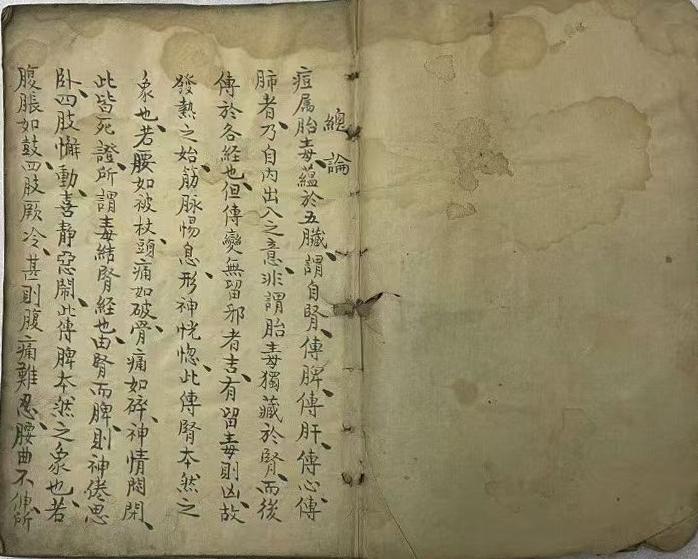 總論
痘属胎毒、蘊於五臟、謂自腎、傳脾傳肝、傳心傳
肺者、乃自内出入之意、非謂胎毒獨藏於腎、而後
傳於各経也、但傳變無留邪者吉、有留毒則凶、故
發熱之始、筋脉惕息、形神恍惚、此傳腎本然之
象也、若腰如被杖、頭痛如破、骨痛如碎、神情悶閉、
此皆死證、所謂毒結腎経也、由腎而脾、則神倦思
卧、四肢懈動、喜静惡鬧、此傳脾本然之象也、若
腹脹如鼓、四肢厥冷、甚則腹痛難忍、腰曲不伸、所